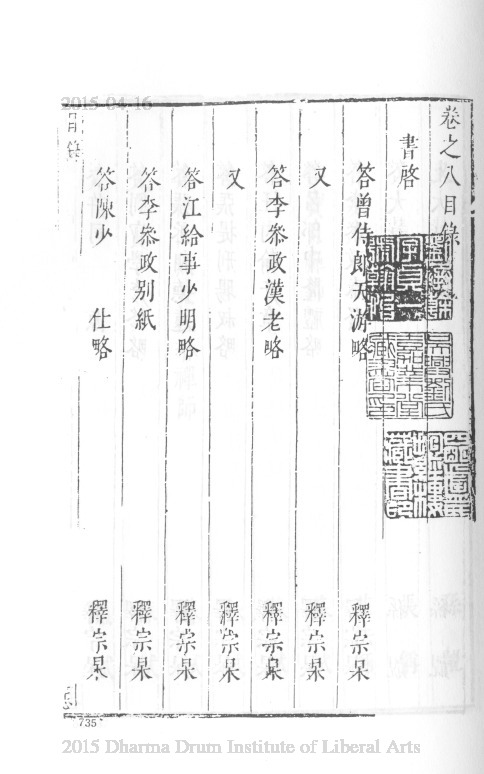 2015-04-16
卷之八目錄
書啓
答曾侍郎天游略 釋宗杲
又 釋宗杲
答李叅政漢老略 釋宗杲
又 釋宗杲
答江給事少明略 釋宗杲
答李叅政别紙 釋宗杲
答陳少 仕略 釋宗杲
吳興劉氏嘉業堂藏書印
735
2015 Dharma Drum Institute of Liberal Arts